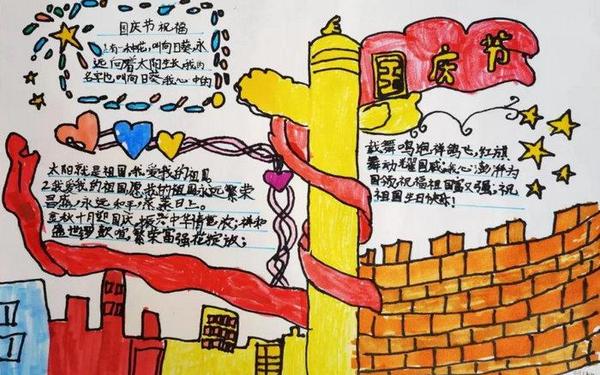 国庆节
国庆节祝福
1.有一种花,叫向日葵,永
远向着太阳生长,我的
名字也叫向日葵,我心中的
太阳就是祖国,我爱我的祖国
2.我爱我的祖国愿我的祖国永远繁荣
昌盛,永远和平,蒸蒸日上。
金秋十月迎国庆,振兴中华情意浓;祥和
盛世锣鼓喧,繁荣富强花绽放;
鼓舞鸣炮祥鸽飞,红旗
舞动耀国威;我心澎湃为
国颂,祝福祖国富又强;祝
祖国生日快乐!